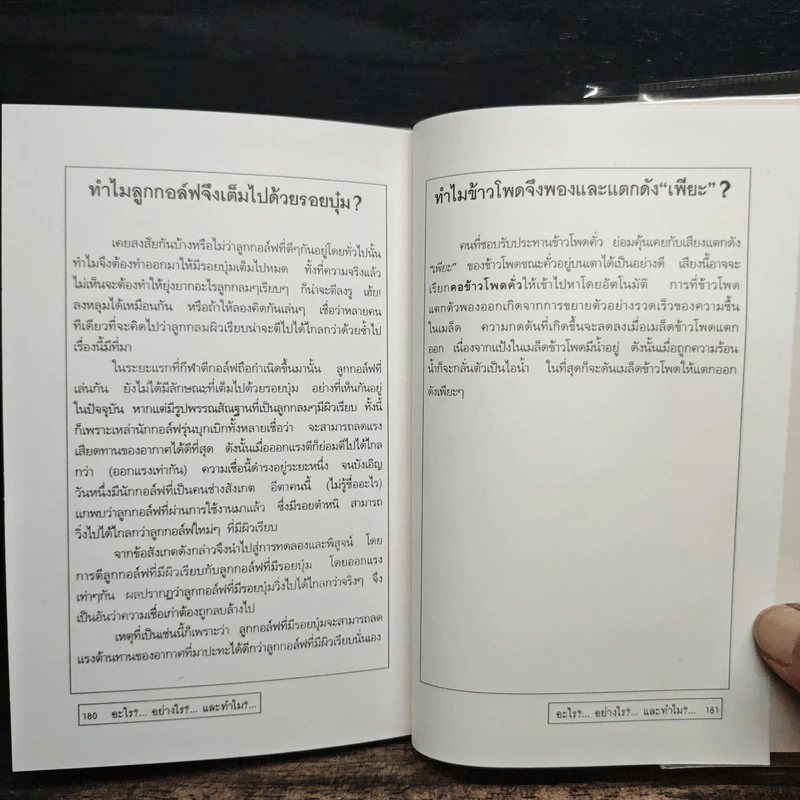 ทำไมลูกกอล์ฟจึงเต็มไปด้วยรอยบุ๋ม?
เคยสงสัยกันบ้างหรือไม่ว่าลูกกอล์ฟที่ตีๆกันอยู่โดยทั่วไปนั้น
ทำไมจึงต้องทำออกมาให้มีรอยบุ๋มเต็มไปหมด ทั้งที่ความจริงแล้ว
ไม่เห็นจะต้องทำให้ยุ่งยากอะไรลูกกลมๆเรียบๆ ก็น่าจะตีลงรู เฮ้ย!
ลงหลุมได้เหมือนกัน หรือถ้าให้ลองคิดกันเล่นๆ เชื่อว่าหลายคน
ทีเดียวที่จะคิดไปว่าลูกกลมผิวเรียบน่าจะตีไปได้ไกลกว่าด้วยซ้ำไป
เรื่องนี้มีที่มา
ในระยะแรกที่กีฬาตีกอล์ฟถือกำเนิดขึ้นมานั้น ลูกกอล์ฟที่
เล่นกัน ยังไม่ได้มีลักษณะที่เต็มไปด้วยรอยบุ๋ม อย่างที่เห็นกันอยู่
ในปัจจุบัน หากแต่มีรูปพรรณสัณฐานที่เป็นลูกกลมๆมีผิวเรียบ ทั้งนี้
ก็เพราะเหล่านักกอล์ฟรุ่นบุกเบิกทั้งหลายเชื่อว่า จะสามารถลดแรง
เสียดทานของอากาศได้ดีที่สุด ดังนั้นเมื่อออกแรงตีก็ย่อมตีไปได้ไกล
กว่า (ออกแรงเท่ากัน) ความเชื่อนี้ดำรงอยู่ระยะหนึ่ง จนบังเอิญ
วันหนึ่งมีนักกอล์ฟที่เป็นคนช่างสังเกต อีตาคนนี้ (ไม่รู้ชื่ออะไร)
แกพบว่าลูกกอล์ฟที่ผ่านการใช้งานมาแล้ว ซึ่งมีรอยตำหนิ สามารถ
วิ่งไปได้ไกลกว่าลูกกอล์ฟใหม่ๆ ที่มีผิวเรียบ
จากข้อสังเกตดังกล่าวจึงนำไปสู่การทดลองและพิสูจน์ โดย
การตีลูกกอล์ฟที่มีผิวเรียบกับลูกกอล์ฟที่มีรอยบุ๋ม โดยออกแรง
เท่าๆกัน ผลปรากฏว่าลูกกอล์ฟที่มีรอยบุ๋มวิ่งไปได้ไกลกว่าจริงๆ จึง
เป็นอันว่าความเชื่อเก่าต้องถูกลบล้างไป
เหตุที่เป็นเช่นนี้ก็เพราะว่า ลูกกอล์ฟที่มีรอยบุ๋มจะสามารถลด
แรงต้านทานของอากาศที่มาปะทะได้ดีกว่าลูกกอล์ฟที่มีผิวเรียบนั่นเอง
180 อะไร?... อย่างไร?... และทำไม?...
ทำไมข้าวโพดจึงพองและแตกดัง"เพียะ"?
คนที่ชอบรับประทานข้าวโพดคั่ว ย่อมคุ้นเคยกับเสียงแตกดัง
"เพียะ" ของข้าวโพดขณะคั่วอยู่บนเตาได้เป็นอย่างดี เสียงนี้อาจจะ
เรียกคอข้าวโพดคั่วให้เข้าไปหาโดยอัตโนมัติ การที่ข้าวโพด
แตกตัวพองออกเกิดจากการขยายตัวอย่างรวดเร็วของความชื้น
ในเมล็ด ความกดดันที่เกิดขึ้นจะลดลงเมื่อเมล็ดข้าวโพดแตก
ออก เนื่องจากแป้งในเมล็ดข้าวโพดมีน้ำอยู่ ดังนั้นเมื่อถูกความร้อน
น้ำก็จะกลั่นตัวเป็นไอน้ำ ในที่สุดก็จะดันเมล็ดข้าวโพดให้แตกออก
ดังเพียะๆ
อะไร?... อย่างไร?... และทำไม?... 181